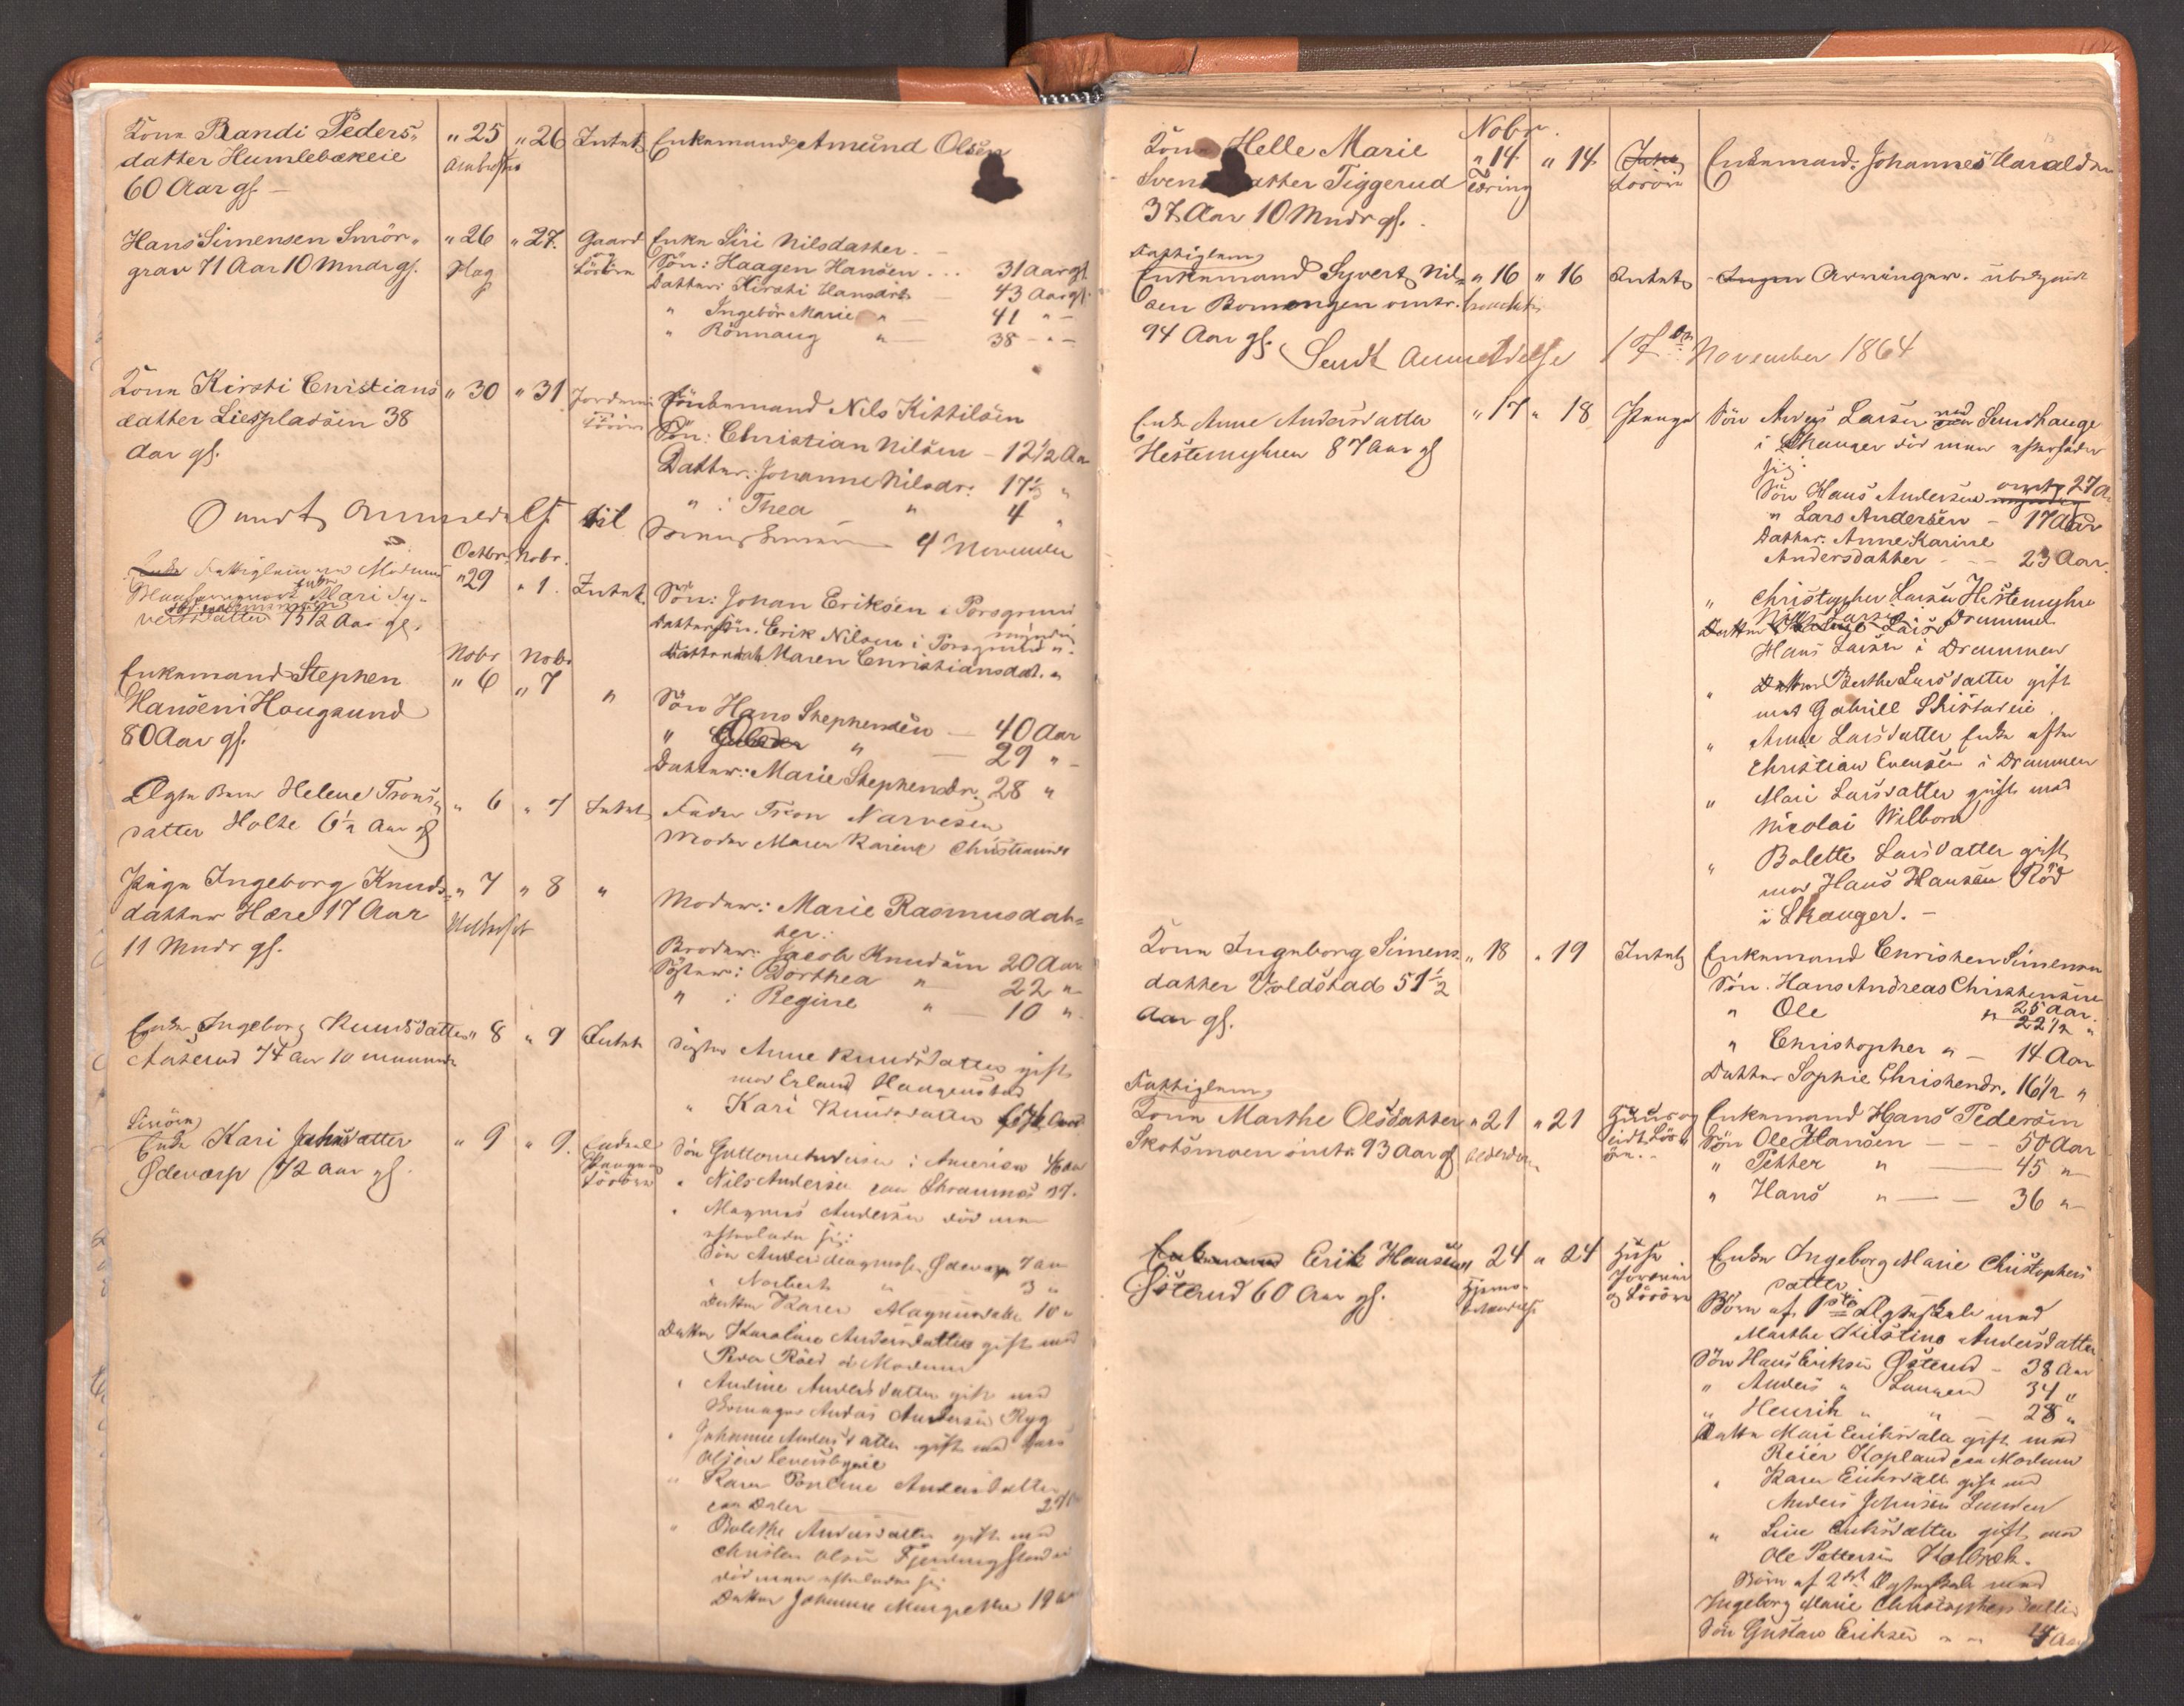 Kone Randi Peders-
datter Humlebækeie
60 Aar gl.
" 25 " 26 Intet
Enkemand Amund Olsen
Hans Simensen Smör-
grav 71 Aar 10 Mndr gl.
" 26 " 27. Gaard
og
Lösöre
Slag
Enke Siri Nilsdatter.
Sön: Haagen Hansen ... 31 Aar gl.
Datter: Kirsti Hansdtr — 43 Aar gl.
" Ingebör Marie " — 41 " —
" Rönnaug " — 38 - " —
Kone Kirsti Christians
datter Liespladsen 38
Aar gl.
" 30 " 31
Enkemand Nils Kittilsen
Sön: Christian Nilsen - 12 1/2 Aar
Datter: Johanne Nilsdr: 17 1/2 "
" : Thea " 4 "
Sendt Anmeldelse til
4 November
Octbr. Nobr.
Enke Fattiglem
Mari Sy-
vertsdatter 75 1/2 Aar gl.
" 29 " 1. Intet.
Sön: Johan Eriksen i Porsgrund
Dattersön: Erik Nilsen i Porsgrund
Maren Christiansdat. "
Nobr Nobr
Enkemand Stephen
Hansen i Hougsund
80 Aar gl.
" 6 " 7 "
Sön Hans Stephensen — 40 Aar
" " — 29 " —
Datter: Marie Stephensdr. 28 "
Ægte Barn Helene Trons-
datter Holte 6 1/2 Aar gl
" 6 " 7 Intet
Fader Tron Narvesen
Moder Maren Karine Christiansdr
Pige Ingeborg Knuds-
datter Hære 17 Aar
11 Mndr gl.
" 7 " 8 "
Moder: Marie Rasmusdat-
ter.
Broder: Jacob Knudsen 20 Aar
Söster: Dorthea " 22 "
" : Regine " — 10 "
Enke Ingeborg Knudsdatter
Aaserud 74 Aar 10 maaneder
" 8 " 9 Intet
Söster Anne Knudsdatter gift
med Erland Haugenstad
" Kari Knudsdatter
Enke Kari Jahnsdatter
Ödevarp 72 Aar gl.
" 9 " 9.
Lösöre
Sön Guttorm Andersen i Amerika
" Nils Andersen paa 37.
" Magnus Andersen död men
efterlader sig:
Sön Anders Magnusen Ödevarp 7 Aar
" Norbert " 3 "
Datter Karen Magnusdatter 10 "
Datter Karoline Andersdatter gift med
Peder Röed i Modum
" Andine Andersdatter gift med
Skomager Andreas Andersen Ryg
" Johanne Andersdatter gift med Hans
Olsen
" Karen Pouline Andersdatter
" Bolette Andersdatter gift med
Christen Olsen
död men efterlader sig
Datter Johanne Margrethe 19 Aar
Nobr.
Kone Helle Marie
Svendsdatter Tiggerud
37 Aar 10 Mndr gl.
" 14 " 14
Tæring
Lösöre
Enkemand: Johannes Haraldsen
Fattiglem
Enkemand Syvert Nil-
sen Bomengen omtr.
94 Aar gl.
" 16 " 16 Intet
Ingen Arvinger. ubekjendt
Sendt Anmeldelse 17de November 1864
Enke Anne Andersdatter
Hestemyhren 87 Aar gl
" 17 " 18 Penge
Sön Anders Larsen Sundhauge
i Skouger död men efterlader
sig:
Sön Hans Andersen omtr 27 Aar
" Lars Andersen - 17 Aar
Datter: Anne Karine
Andersdatter - - - 23 Aar.
" Christopher Larsen Hestemyhr
Nils Larsen i Drammen
Hans Larsen i Drammen
" Datter Berthe Larsdatter gift
med Gabriell
" Anne Larsdatter Enke efter
Christian Evensen i Drammen
" Mari Larsdatter gift med
Nicolai Wilborn
" Bolette Larsdatter gift
med Hans Hansen Röd
i Skouger. —
Kone Ingeborg Simens-
datter Voldstad 51 1/2
Aar gl.
" 18 " 19 Intet
Enkemand Christen Simensen
Sön. Hans Andreas Christensen
25 Aar.
" Ole " 22 1/2 "
" Christopher " — 14 Aar
Datter Sophie Christendr. 16 1/2 "
Fattiglem
Kone Marthe Olsdatter
Skotsmoen omtr. 93 Aar gl
" 21 " 21
Alderdom
Enkemand Hans Pedersen
Sön Ole Hansen — — — 50 Aar
" Petter " — 45 "
" Hans " — — 36 "
Enkemand Erik Hansen
Österud 60 Aar gl.
" 24 " 24
og Lösöre
Enke Ingeborg Marie Christophers
datter.
Börn af 1ste Ægteskab med
Marthe Kirstine Andersdatter
Sön Hans Eriksen Österud — 38 Aar
" Anders " 34 "
" Henrik " " — 28 "
Datter Mari Eriksdatter gift med
Reier Kopland paa Modum
" Karen Eriksdatter gift med
Anders Johnsen Lunden
" Line Eriksdatter gift med
Ole Pettersen Kolbræk.
Börn af 2det Ægteskab med
Ingeborg Marie Christophersdatter
Sön Gustav Eriksen " "